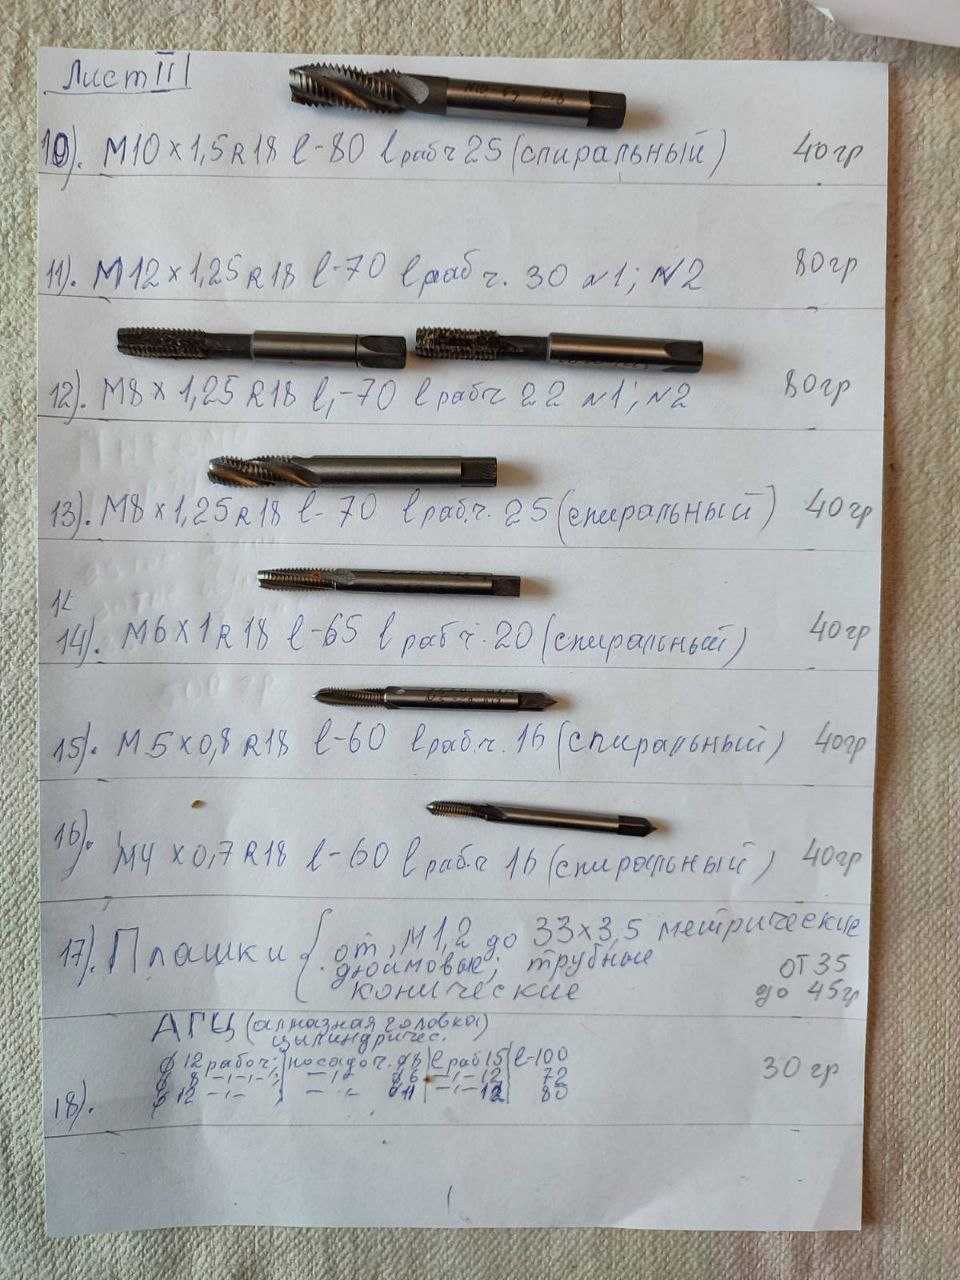 Лист II
10). М10 х 1,5 R18 l-80 l раб ч 25 (спиральный) 40гр
11). М12 х 1,25 R18 l-70 l раб ч. 30 №1; №2 80гр
12). М8 х 1,25 R18 l,-70 l раб ч 22 №1; №2 80гр
13). М8 х 1,25 R18 l-70 l раб.ч. 25 (спиральный) 40гр
14). М6 х 1 R18 l-65 l раб ч. 20 (спиральный) 40гр
15). М5 х 0,8 R18 l-60 l раб.ч. 16 (спиральный) 40гр
16). М4 х 0,7 R18 l-60 l раб.ч 16 (спиральный) 40гр
17). Плашки { от М1,2 до 33х3,5 метрические
дюймовые; трубные от 35
конические до 45гр
АГЦ (алмазная головка)
цылиндричес.
ϕ 12 рабоч; посадоч. д8 l раб 15 l-100 30 гр
ϕ 8 -ı-ı-; -ı- д6 -ı-ı-12 72
18). ϕ 12 -ı-ı- ; -ı- 12 80